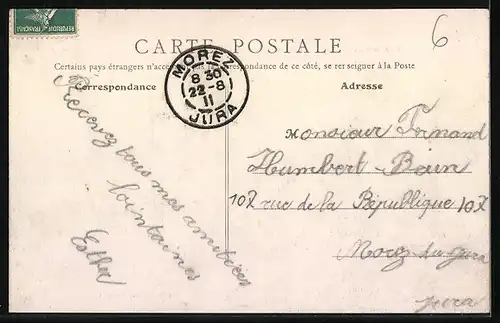 REPUBLIQUE FRANÇAISE
6
CARTE POSTALE
Certains pays étrangers n'acceptant pas la correspondance de ce côté, se renseigner à la Poste
Correspondance
Adresse
MOREZ
8 30
22-8
11
JURA
Recevez tous mes amitiées
lointaines
Esther
Monsieur Fernand
Humbert-Brun
107 rue de la République 107
Morez-du-Jura
Jura